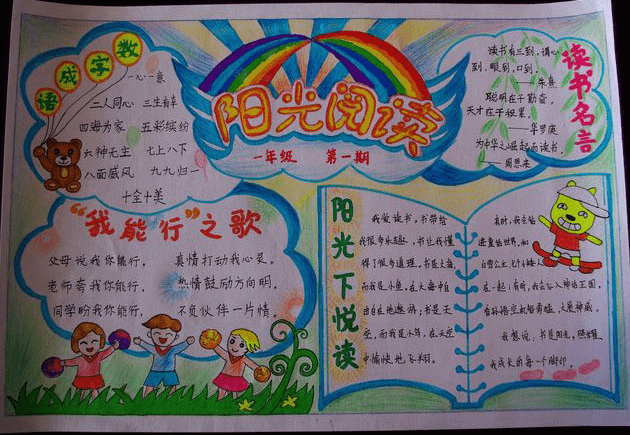 阳光阅读
一年级 第一期
数字成语
一心一意
二人同心 三生有幸
四海为家 五彩缤纷
六神无主 七上八下
八面威风 九九归一
十全十美
读书名言
读书有三到,谓心
到,眼到,口到。
——朱熹
聪明在于勤奋,
天才在于积累。
——华罗庚
为中华之崛起而读书。
——周恩来
“我能行”之歌
父母说我你能行, 真情打动我心灵。
老师夸我你能行, 热情鼓励方向明。
同学盼我你能行, 不负伙伴一片情。
阳光下悦读
我爱读书,书带给
我很多乐趣,书让我懂
得了很多道理。书是大海,
而我是小鱼,在大海中自
由自在地遨游;书是天
空,而我是小鸟,在天空
中愉快地飞翔。
有时,我会钻
进童话世界,和
白雪公主、七个小矮人
在一起;有时,我会入神话王国,
看孙悟空大显神威。
我想说:书是阳光,照耀
我成长的每一个脚印。